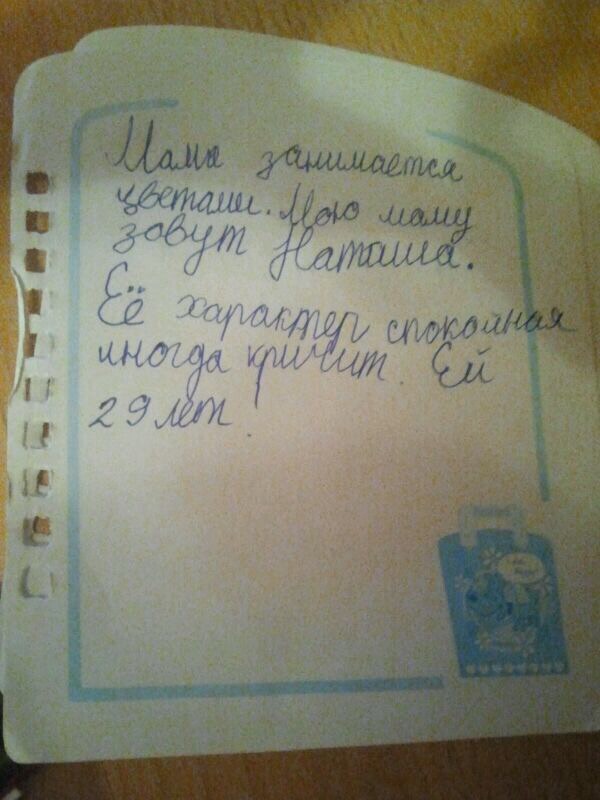 Мама занимается
цветами. Мою маму
зовут Наташа.
Её характер спокойная
иногда кричит. Ей
29 лет.